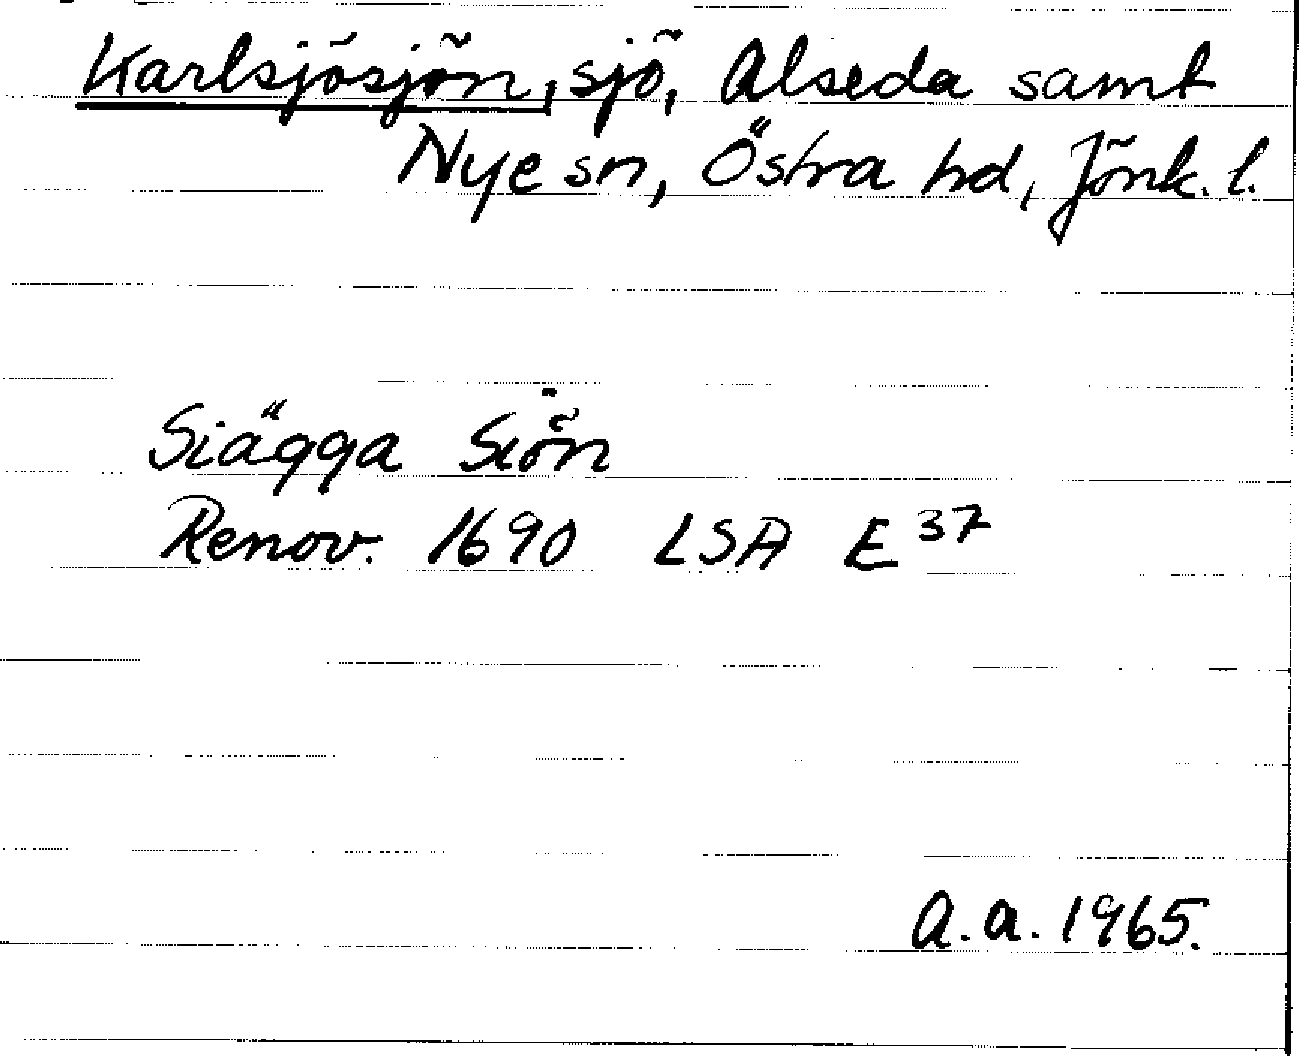 Karlsjösjön, sjö, Alseda samt
Nye sn, Östra hd, Jönk. l.
Siägga Siön
Renov. 1690 LSA E 37
A.a. 1965.